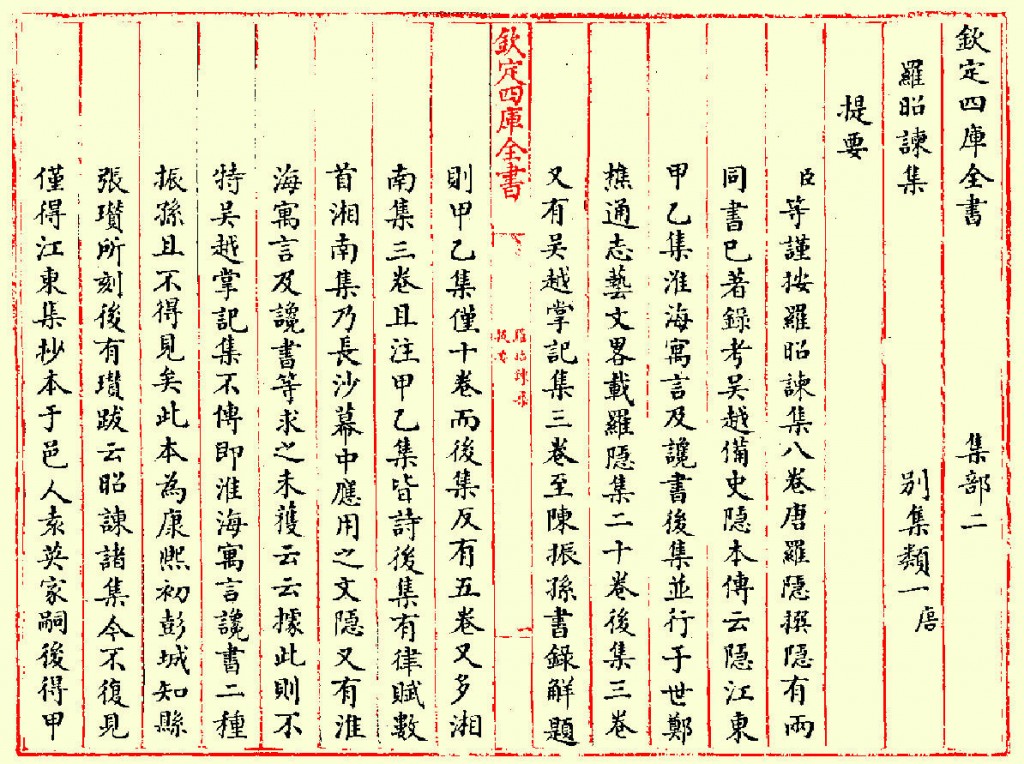 欽定四庫全書 集部二
羅昭諫集 別集類一唐
提要
臣等謹按羅昭諫集八卷唐羅隱撰隱有兩
同書已著錄考吳越備史隱本傳云隱江東
甲乙集淮海寓言及讒書後集並行于世鄭
樵通志藝文畧載羅隱集二十卷後集三卷
又有吳越掌記集三卷至陳振孫書錄解題
欽定四庫全書
羅昭諫集
提要
則甲乙集僅十卷而後集反有五卷又多湘
南集三卷且注甲乙集皆詩後集有律賦數
首湘南集乃長沙幕中應用之文隱又有淮
海寓言及讒書等求之未獲云云據此則不
特吳越掌記集不傳即淮海寓言讒書二種
振孫且不得見矣此本為康熙初彭城知縣
張瓚所刻後有瓚跋云昭諫諸集今不復見
僅得江東集抄本于邑人袁英家嗣後得甲